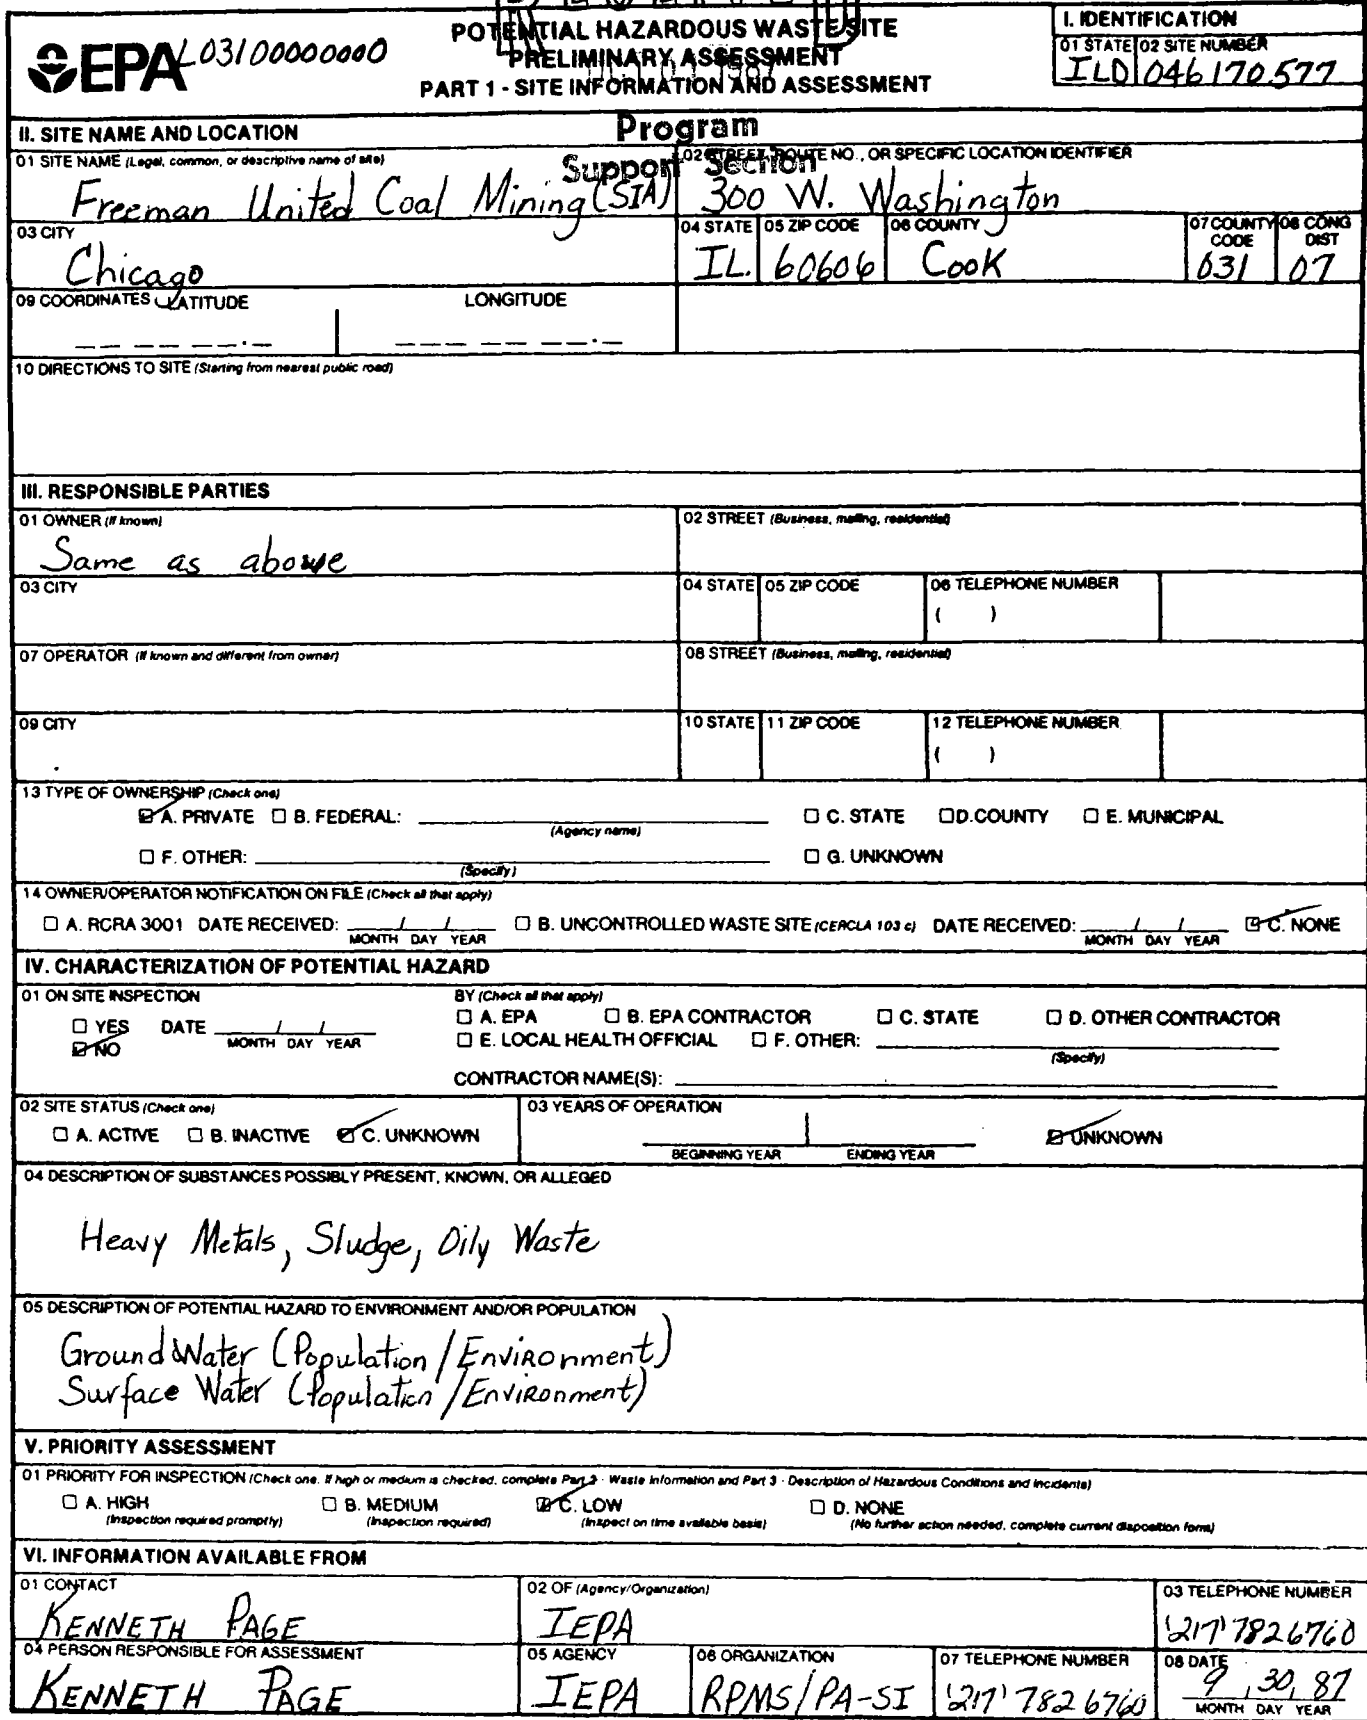 EPA L03100000000
POTENTIAL HAZARDOUS WASTE SITE
PRELIMINARY ASSESSMENT
PART 1 - SITE INFORMATION AND ASSESSMENT
I. IDENTIFICATION
01 STATE 02 SITE NUMBER
ILD 046170577
II. SITE NAME AND LOCATION
Program
Support Section
01 SITE NAME (Legal, common, or descriptive name of site)
Freeman United Coal Mining (SIA)
02 STREET, ROUTE NO., OR SPECIFIC LOCATION IDENTIFIER
300 W. Washington
03 CITY
Chicago
04 STATE
IL.
05 ZIP CODE
60606
06 COUNTY
Cook
07 COUNTY CODE
031
08 CONG DIST
07
09 COORDINATES LATITUDE LONGITUDE
10 DIRECTIONS TO SITE (Starting from nearest public road)
III. RESPONSIBLE PARTIES
01 OWNER (if known)
Same as above
02 STREET (Business, mailing, residential)
03 CITY
04 STATE 05 ZIP CODE 06 TELEPHONE NUMBER
( )
07 OPERATOR (If known and different from owner)
08 STREET (Business, mailing, residential)
09 CITY
10 STATE 11 ZIP CODE 12 TELEPHONE NUMBER
( )
13 TYPE OF OWNERSHIP (Check one)
☑ A. PRIVATE ☐ B. FEDERAL: (Agency name) ☐ C. STATE ☐ D. COUNTY ☐ E. MUNICIPAL
☐ F. OTHER: (Specify) ☐ G. UNKNOWN
14 OWNER/OPERATOR NOTIFICATION ON FILE (Check all that apply)
☐ A. RCRA 3001 DATE RECEIVED: / / ☐ B. UNCONTROLLED WASTE SITE (CERCLA 103 c) DATE RECEIVED: / / ☑ C. NONE
MONTH DAY YEAR MONTH DAY YEAR
IV. CHARACTERIZATION OF POTENTIAL HAZARD
01 ON SITE INSPECTION
☐ YES DATE / /
☑ NO MONTH DAY YEAR
BY (Check all that apply)
☐ A. EPA ☐ B. EPA CONTRACTOR ☐ C. STATE ☐ D. OTHER CONTRACTOR
☐ E. LOCAL HEALTH OFFICIAL ☐ F. OTHER:
(Specify)
CONTRACTOR NAME(S):
02 SITE STATUS (Check one)
☐ A. ACTIVE ☐ B. INACTIVE ☑ C. UNKNOWN
03 YEARS OF OPERATION
☑ UNKNOWN
BEGINNING YEAR ENDING YEAR
04 DESCRIPTION OF SUBSTANCES POSSIBLY PRESENT, KNOWN, OR ALLEGED
Heavy Metals, Sludge, Oily Waste
05 DESCRIPTION OF POTENTIAL HAZARD TO ENVIRONMENT AND/OR POPULATION
Ground Water (Population/Environment)
Surface Water (Population/Environment)
V. PRIORITY ASSESSMENT
01 PRIORITY FOR INSPECTION (Check one. If high or medium is checked, complete Part 2 - Waste Information and Part 3 - Description of Hazardous Conditions and Incidents)
☐ A. HIGH ☐ B. MEDIUM ☑ C. LOW ☐ D. NONE
(Inspection required promptly) (Inspection required) (Inspect on time available basis) (No further action needed, complete current disposition form)
VI. INFORMATION AVAILABLE FROM
01 CONTACT
KENNETH PAGE
02 OF (Agency/Organization)
IEPA
03 TELEPHONE NUMBER
(217) 7826760
04 PERSON RESPONSIBLE FOR ASSESSMENT
KENNETH PAGE
05 AGENCY
IEPA
06 ORGANIZATION
RPMS/PA-SI
07 TELEPHONE NUMBER
(217) 7826760
08 DATE
9, 30, 87
MONTH DAY YEAR